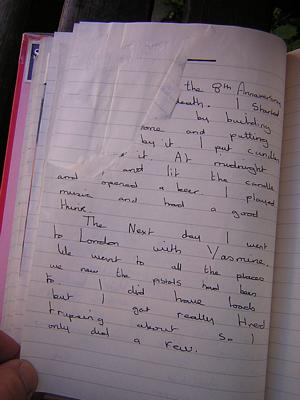 the 8th Anniversary
death. I started
by building
and putting
by it I put candles
it. At midnight
and lit the candle
and opened a beer I played
music and had a good
think.
The Next day I went
to London with Yasmine.
We went to all the places
we new the pistols had been
to. I did have loads
but I got really tired
trypeing about so I
only did a few.